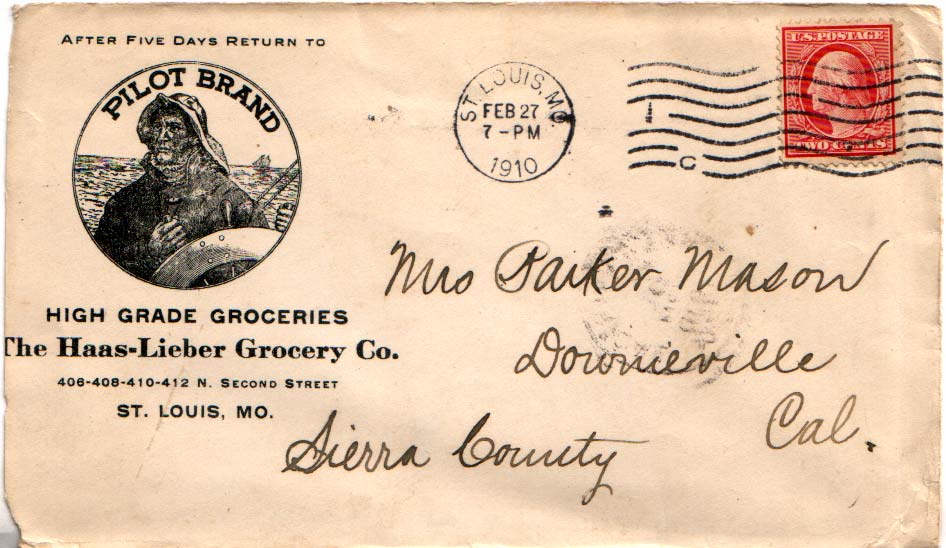 AFTER FIVE DAYS RETURN TO
PILOT BRAND
HIGH GRADE GROCERIES
The Haas-Lieber Grocery Co.
406-408-410-412 N. SECOND STREET
ST. LOUIS, MO.
ST. LOUIS, MO
FEB 27
7-PM
1910
C
U.S. POSTAGE
TWO CENTS
Mrs Parker Mason
Downieville
Cal.
Sierra County